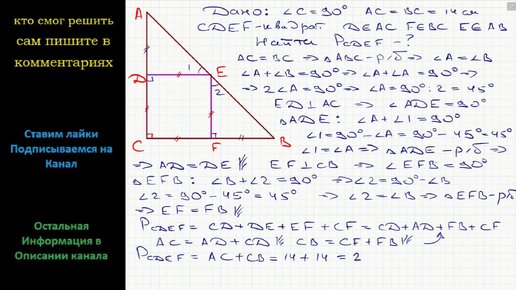 кто смог решить
сам пишите в
комментариях
Ставим лайки
Подписываемся на
Канал
Остальная
Информация в
Описании канала
A
D
1
E
2
C
F
B
Дано: ∠C=90° AC=BC=14см
CDEF-квадрат D∈AC F∈BC E∈AB
Найти P_CDEF-?
AC=BC ⇒ △ABC-р/б ⇒ ∠A=∠B
∠A+∠B=90° ⇒ ∠A+∠A=90° ⇒
⇒ 2∠A=90° ⇒ ∠A=90°:2=45°
ED⊥AC ⇒ ∠ADE=90°
△ADE: ∠A+∠1=90°
∠1=90°-∠A=90°-45°=45°
∠1=∠A ⇒ △ADE-р/б ⇒
⇒ AD=DE // EF⊥CB ⇒ ∠EFB=90°
△EFB: ∠B+∠2=90° ⇒ ∠2=90°-∠B
∠2=90°-45°=45° ⇒ ∠2=∠B ⇒ △EFB-р/б
⇒ EF=FB //
P_CDEF = CD+DE+EF+CF = CD+AD+FB+CF
AC=AD+CD // CB=CF+FB //
P_CDEF = AC+CB = 14+14 = 2